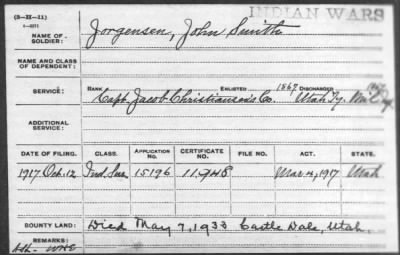 (3-II-11)
INDIAN WARS
NAME OF SOLDIER: Jorgensen, John Smith
NAME AND CLASS OF DEPENDENT:
SERVICE: RANK ENLISTED 1867 DISCHARGED
Capt. Jacob Christianson's Co. Utah Ty.
ADDITIONAL SERVICE:
DATE OF FILING. CLASS. APPLICATION NO. CERTIFICATE NO. FILE NO. ACT. STATE.
1917 Oct. 12 Ind. Sur. 15196 11948 Mar 4, 1917 Utah
BOUNTY LAND: Died May 7, 1933 Castle Dale, Utah.
REMARKS: